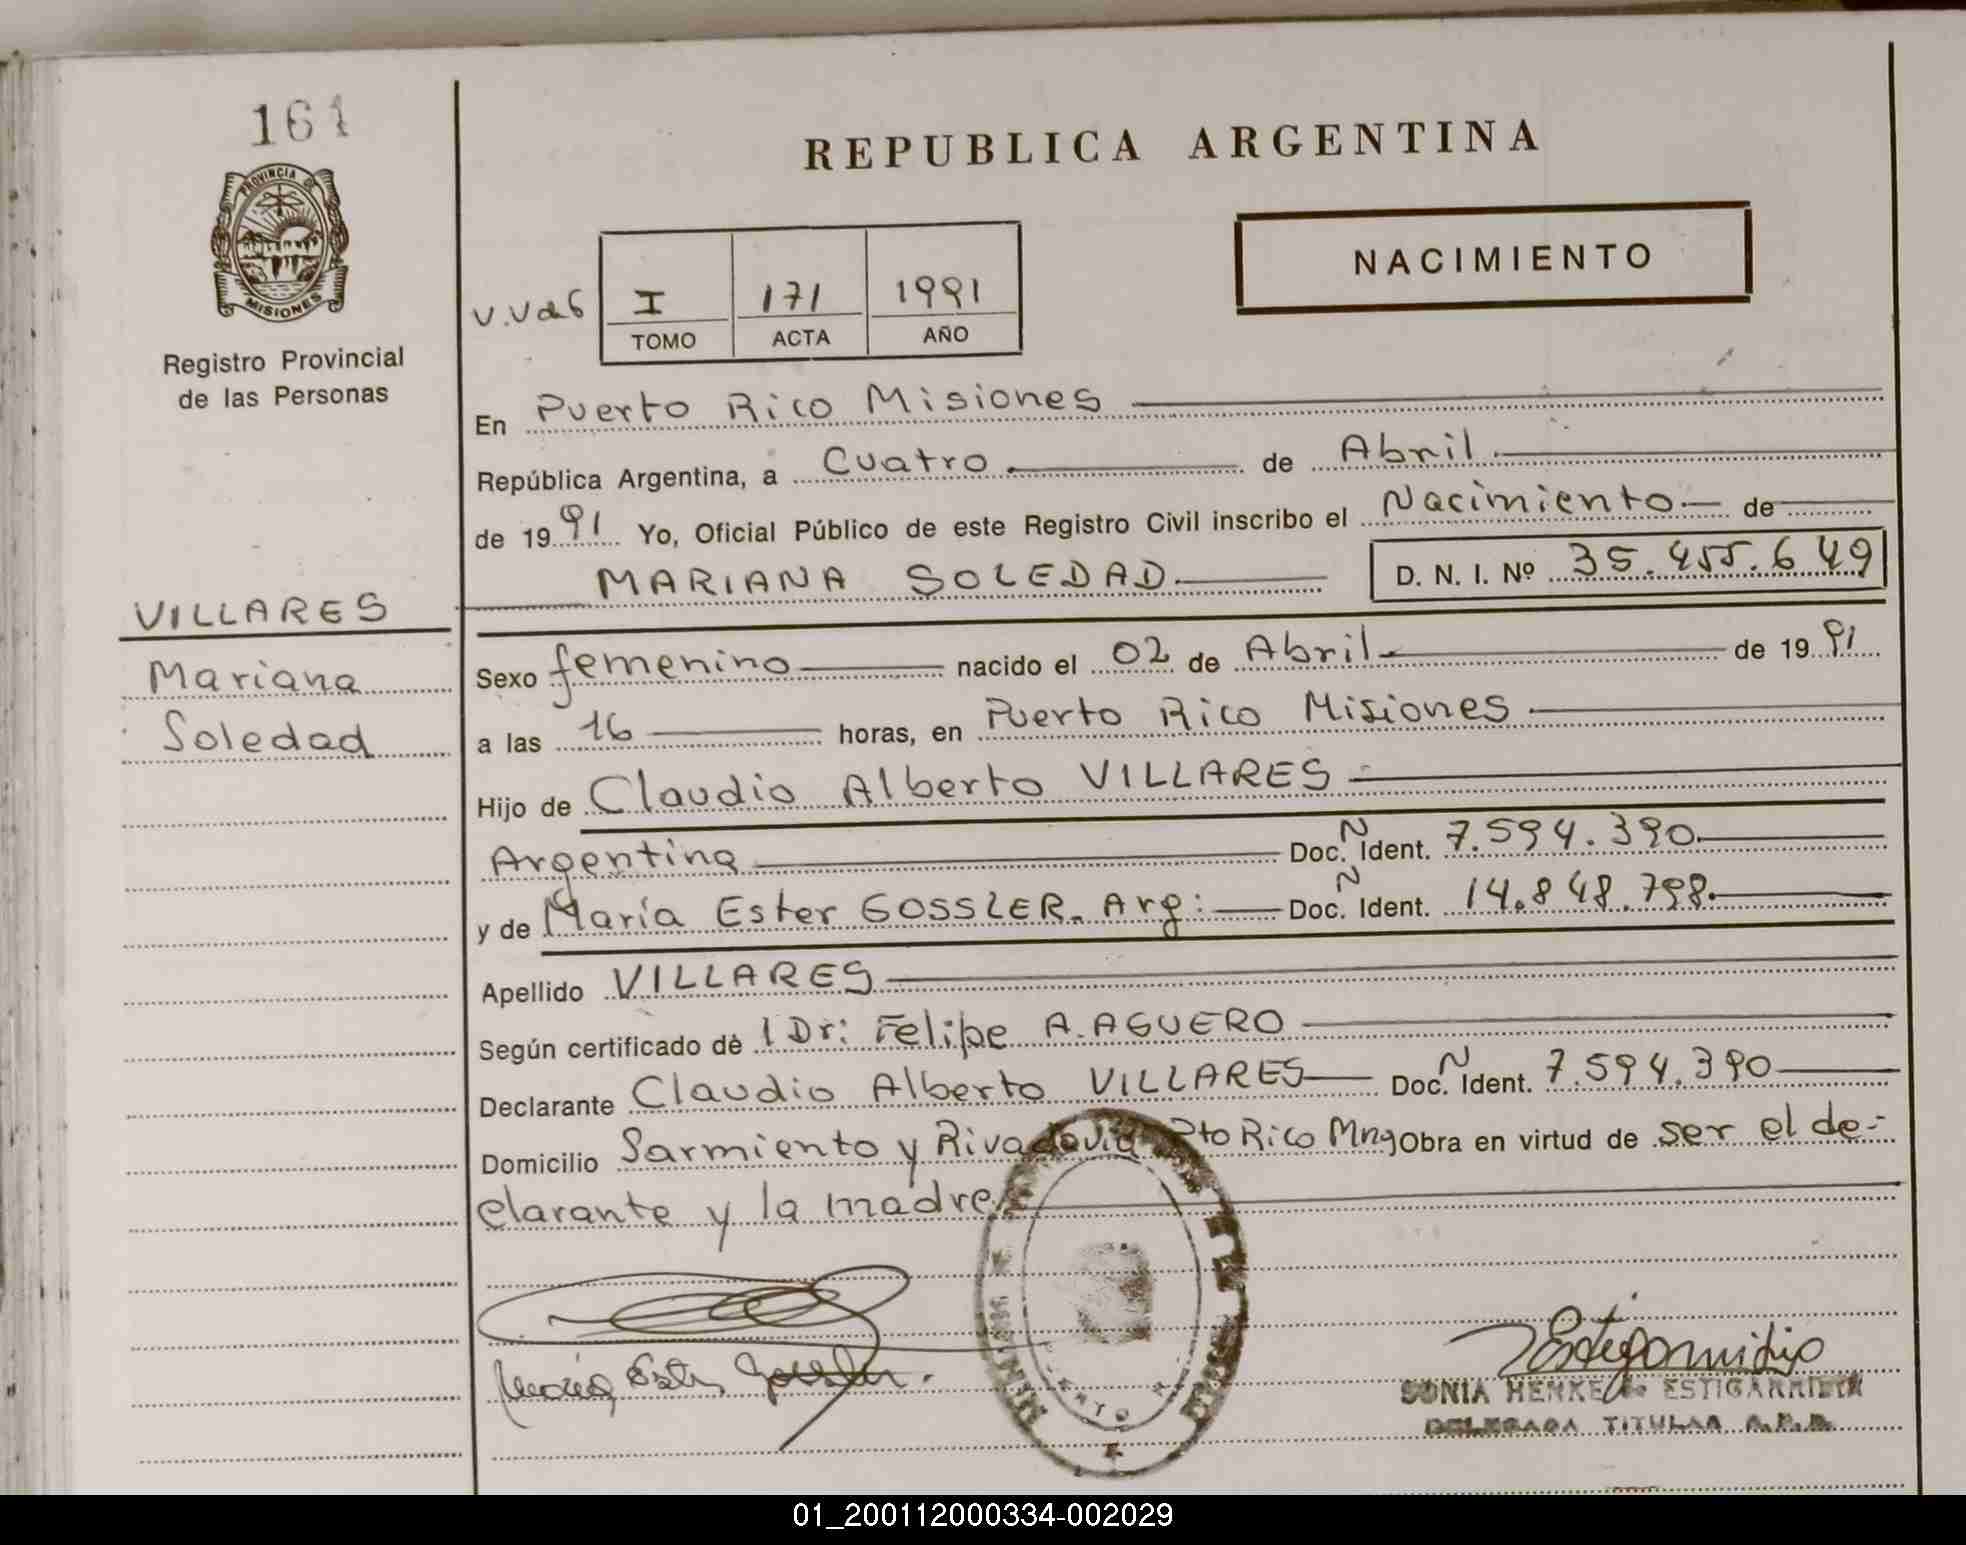 161
REPUBLICA ARGENTINA
PROVINCIA DE
MISIONES
Registro Provincial
de las Personas
NACIMIENTO
V.V de 6
I 171 1991
TOMO ACTA AÑO
En Puerto Rico Misiones
República Argentina, a Cuatro de Abril
de 1991 Yo, Oficial Público de este Registro Civil inscribo el Nacimiento de
MARIANA SOLEDAD D. N. I. Nº 35.455.649
VILLARES
Mariana
Soledad
Sexo femenino nacido el 02 de Abril de 1991
a las 16 horas, en Puerto Rico Misiones
Hijo de Claudio Alberto VILLARES
Argentina Doc. N Ident. 7.594.390
y de María Ester GOSSLER. Arg: Doc. N Ident. 14.848.798
Apellido VILLARES
Según certificado de l Dr: Felipe A. AGUERO
Declarante Claudio Alberto VILLARES Doc. N Ident. 7.594.390
Domicilio Sarmiento y Rivadavia Pto Rico Mnes Obra en virtud de ser el de-
clarante y la madre
María Ester Gossler.
SONIA HENKE de ESTIGARRIBIA
DELEGADA TITULAR R.P.P.
01_200112000334-002029